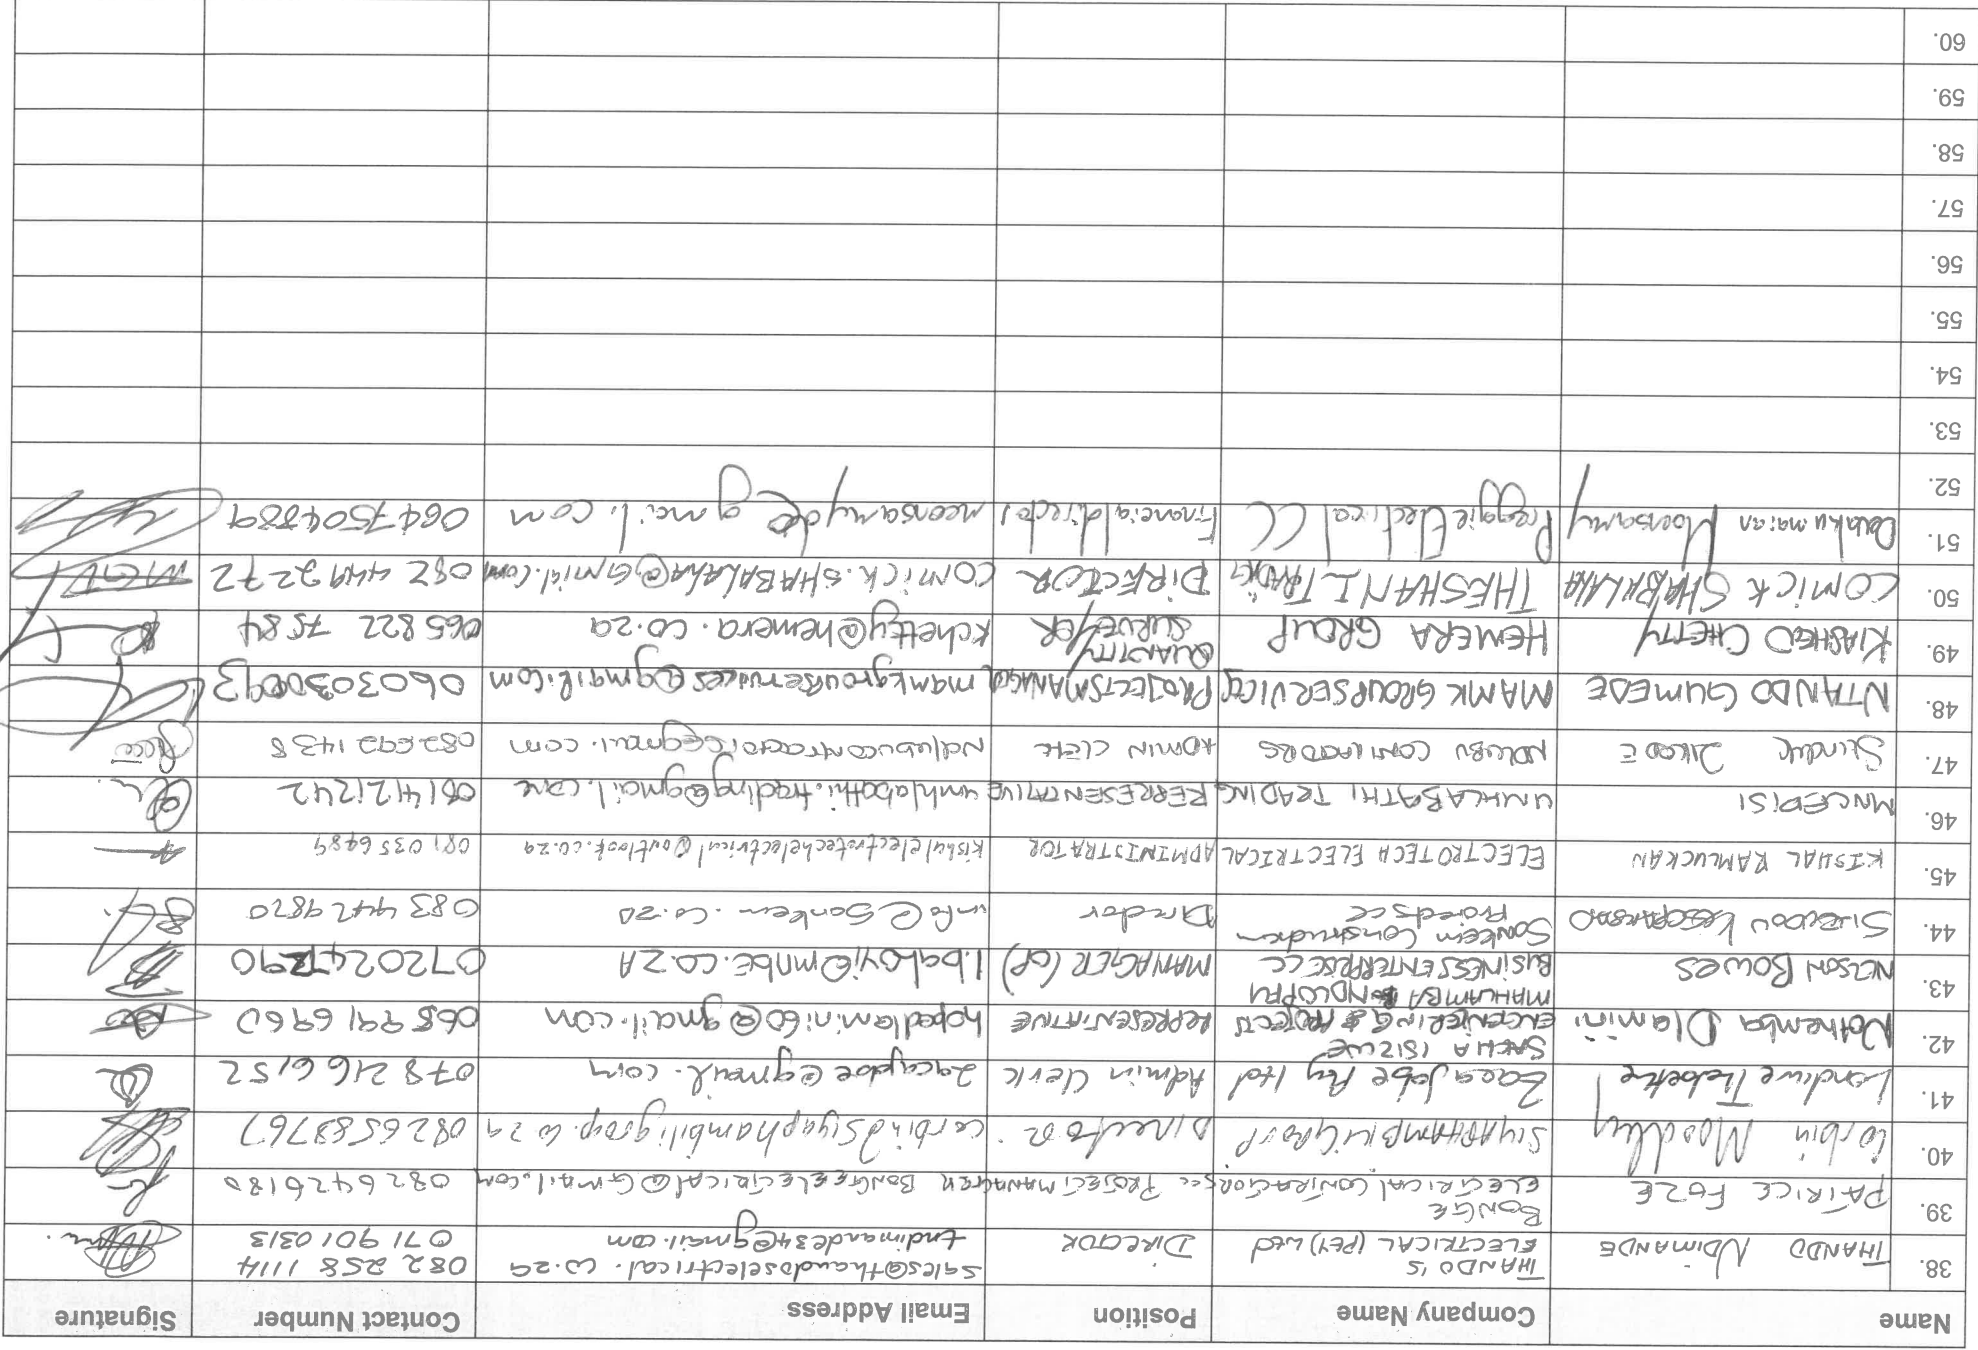 Name Company Name Position Email Address Contact Number Signature
38. THANDO NDIMANDE THANDO'S ELECTRICAL (PTY) LTD DIRECTOR sales@thandoselectrical.co.za tndimande34@gmail.com 082 258 1114 071 901 0313
39. PATRICE FOZE BONGE ELECTRICAL CONTRACTORS cc PROJECT MANAGER BONGEELECTRICAL@Gmail.com 0826426180
40. Corbin Moodley SIYAPHAMBILI GROUP Director corbin@siyaphambiligroup.co.za 0826583767
41. Londiwe Zaca Jobe Pty ltd Admin Clerk zacajobe@gmail.com 078 216 6152
42. Nothemba Dlamini SAKHA ISIZWE ENGINEERING & PROJECTS REPRESENTATIVE hopedlamini60@gmail.com 068 991 6960
43. NELSON BOWES MAHLAMBA NDLOPFU BUSINESS ENTERPRISE CC MANAGER (OP) l.baloyi@mnbe.co.ZA 0720247290
44. Sonkem Construction Projects cc Director info@Sonkem.co.za 083 442 9820
45. KISHAL RAMLUCKAN ELECTROTECH ELECTRICAL ADMINISTRATOR kishalelectrotechelectrical@outlook.co.za 081 035 6489
46. MNCEDISI UMHLABATHI TRADING REPRESENTATIVE umhlabathi.trading@gmail.com 0814121242
47. NDLUBU CONTRACTORS ADMIN CLERK Ndlubucontractors@gmail.com 082 692 1438
48. NTANDO GUMEDE MAMK GROUP SERVICES PROJECTS MANAGER mamkgroupservices@gmail.com 0603030093
49. KIASHEO CHETTY HEMERA GROUP QUANTITY SURVEYER kchetty@hemera.co.za 065 822 7584
50. COMICK SHABALALA THESHANI TRADING DIRECTOR COMICK.SHABALALA@Gmial.com 082 449 2272
51. Moonsamy Preggie Electrical CC Financial director moonsamyd@gmail.com 0647504889
52.
53.
54.
55.
56.
57.
58.
59.
60.